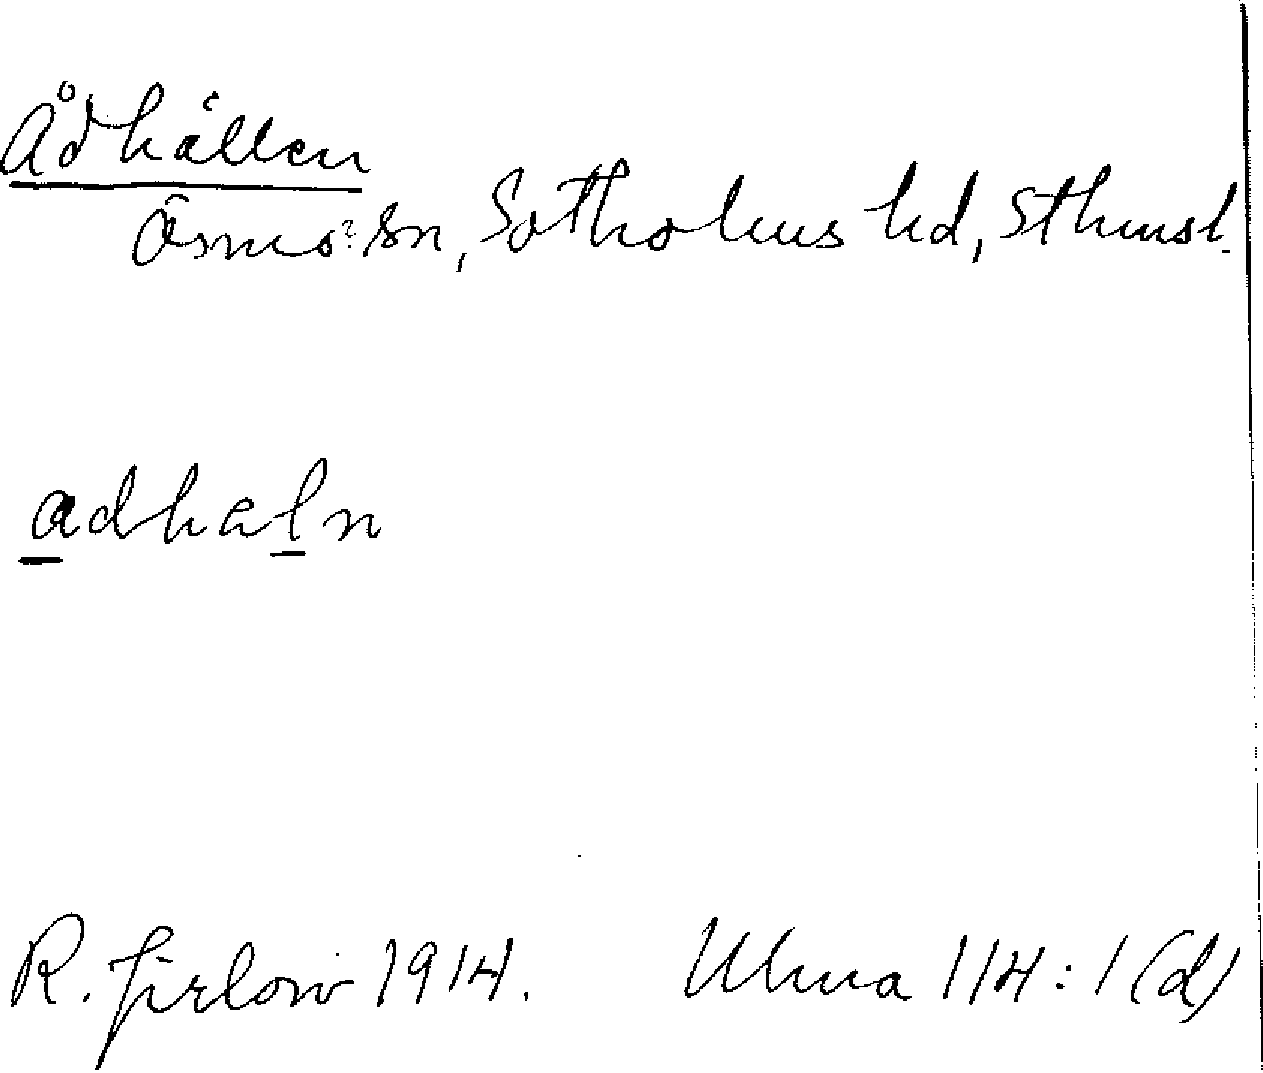 Ådhällen
Ösmo sn, Sotholms hd, Sthmsl.
adhaln
R. Jirlow 1914. Ulma 114:1(d)